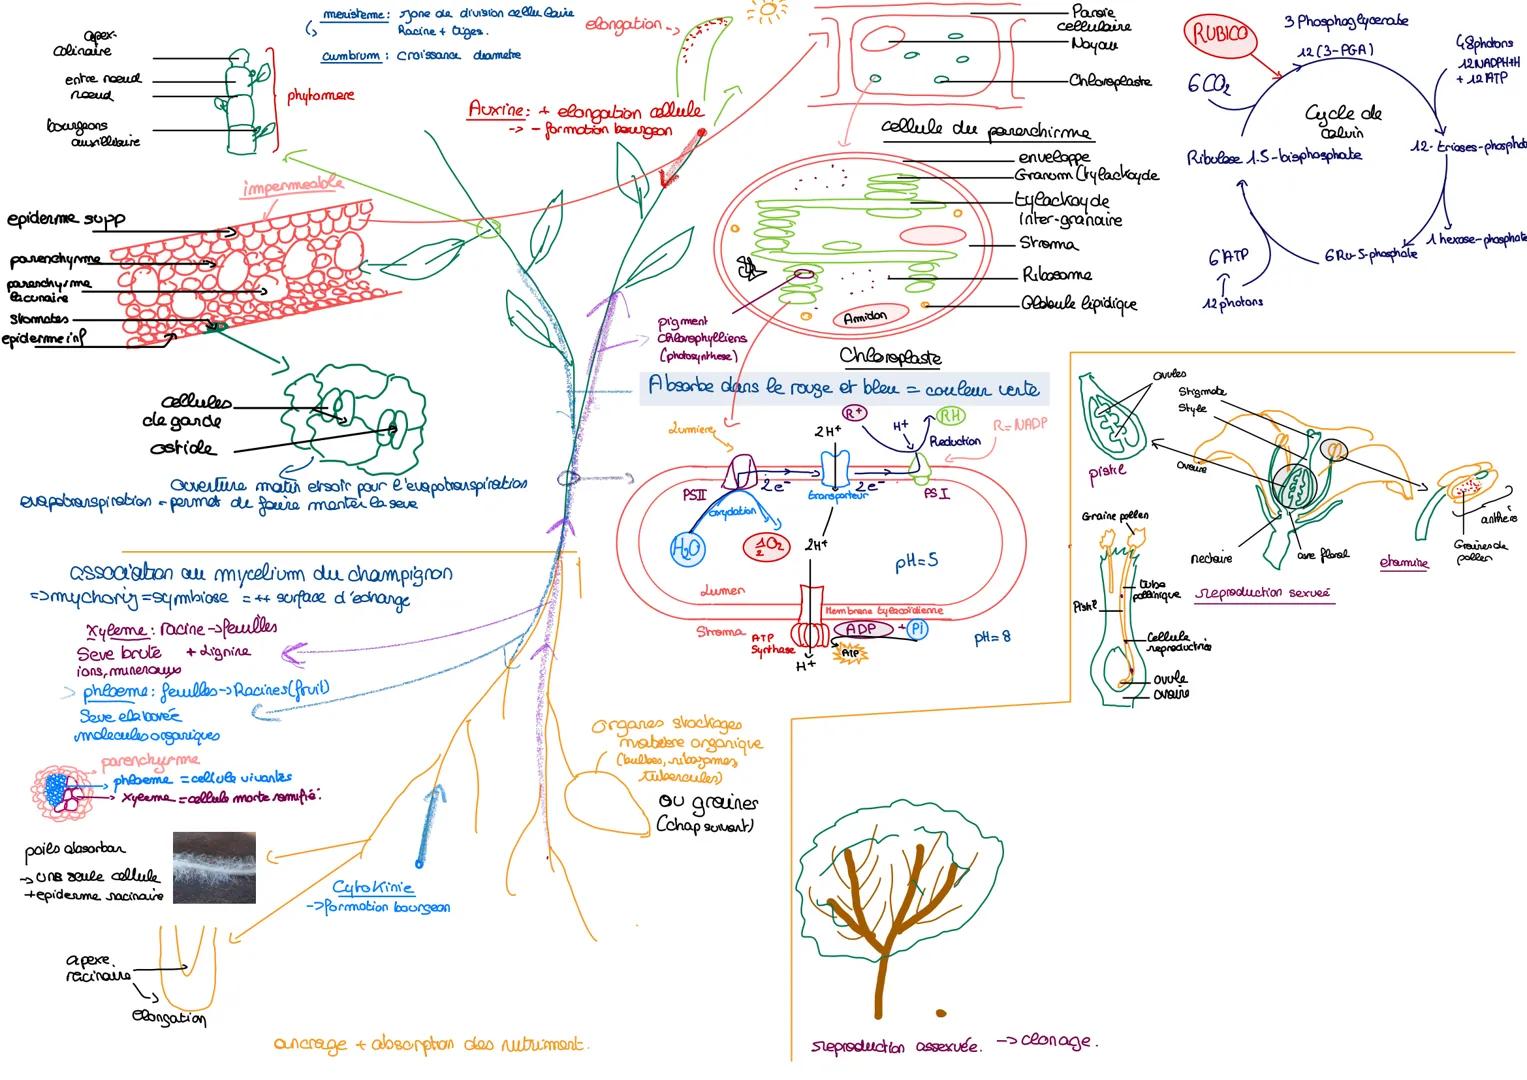 meristeme : zone de division cellulaire
Racine + tiges.
cumbrum : croissance diametre
apex-
calinaire
entre noeud
noeud
bourgeons
auxilliaire
phytomere
elongation
Auxine: + elongation cellule
-> - formation bourgeon
Paroie
cellulaire
Noyau
Chloroplaste
cellule du parenchirme
RUBICO
3 Phosphoglycerate
12 (3-PGA)
48 photons
12 NADPH+H
+ 12 ATP
6CO₂
Cycle de
calvin
Ribulose 1.5-bisphosphate
12-trioses-phosphate
1 hexose-phosphate
6 Ru-5-phosphate
6 ATP
12 photons
impermeable
epiderme supp
parenchyme
parenchyrme
lacunaire
stomates
epiderme inf
enveloppe
Granum (tylackoyde
tylackoyde
inter-granaire
Stroma
Ribosome
Globule lipidique
Amidon
pigment
chlorophylliens
(photosynthese)
Chloroplaste
Absorbe dans le rouge et bleu = couleur verte
cellules
de garde
ostiole
Ouverture matin et soir pour l'evapotranspiration
evapotranspiration = permet de faire monter la seve
Lumiere
2H⁺
R⁺
H⁺
RH
Reduction
R=NADP
PSII
2e⁻
transporteur
2e⁻
PS I
oxydation
H₂O
½O₂
2H⁺
pH=5
Lumen
Membrane tylacoidienne
Stroma
ATP
Synthase
ADP + Pi
ATP
H⁺
pH=8
ovules
pistil
Stigmate
Style
Ovaire
Nectaire
axe floral
etamine
anthère
Graines de
pollen
reproduction sexuée
Graine pollen
tube
pollinique
Pistil
cellule
reproductrice
ovule
ovaire
association au mycelium du champignon
=> mychoriz = symbiose = ++ surface d'echange
Xyleme : racine -> feuilles
Seve brute + Lignine
ions, mineraux
phloeme : feuilles -> Racines (fruit)
Seve elaborée
molecules organiques
parenchyrme
phloeme = cellule vivantes
xyleme = cellule morte ramifié.
poils absorban
-> une seule cellule
+ epiderme racinaire
apexe
racinaire
elongation
Cytokinie
-> formation bourgeon
organes stockages
matière organique
(bulbes, rhizomes,
tubercules)
ou graines
(chap suivant)
ancrage + absorption des nutriment.
reproduction assexuée. -> clonage.